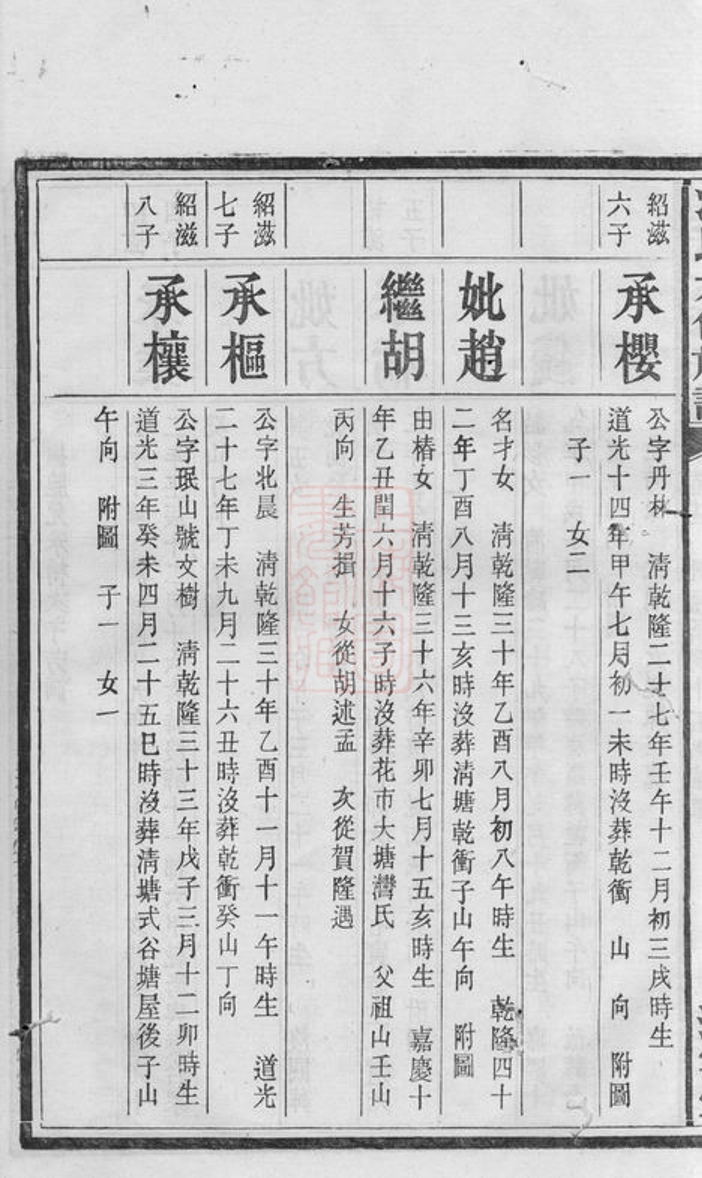 紹滋
六子
承櫻
公字丹林　清乾隆二十七年壬午十二月初三戌時生
道光十四年甲午七月初一未時沒葬乾衝　山　向　附圖
子一　女二
妣趙
名才女　清乾隆三十年乙酉八月初八午時生　乾隆四十
二年丁酉八月十三亥時沒葬清塘乾衝子山午向　附圖
繼胡
由椿女　清乾隆三十六年辛卯七月十五亥時生　嘉慶十
年乙丑閏六月十六子時沒葬花市大塘灣氏　父祖山壬山
丙向　生芳揖　女從胡述孟　次從賀隆遇
紹滋
七子
承樞
公字北晨　清乾隆三十年乙酉十一月十一午時生　道光
二十七年丁未九月二十六丑時沒葬乾衝癸山丁向
紹滋
八子
承欀
公字珉山號文樹　清乾隆三十三年戊子三月十二卯時生
道光三年癸未四月二十五巳時沒葬清塘式谷塘屋後子山
午向　附圖　子一　女一